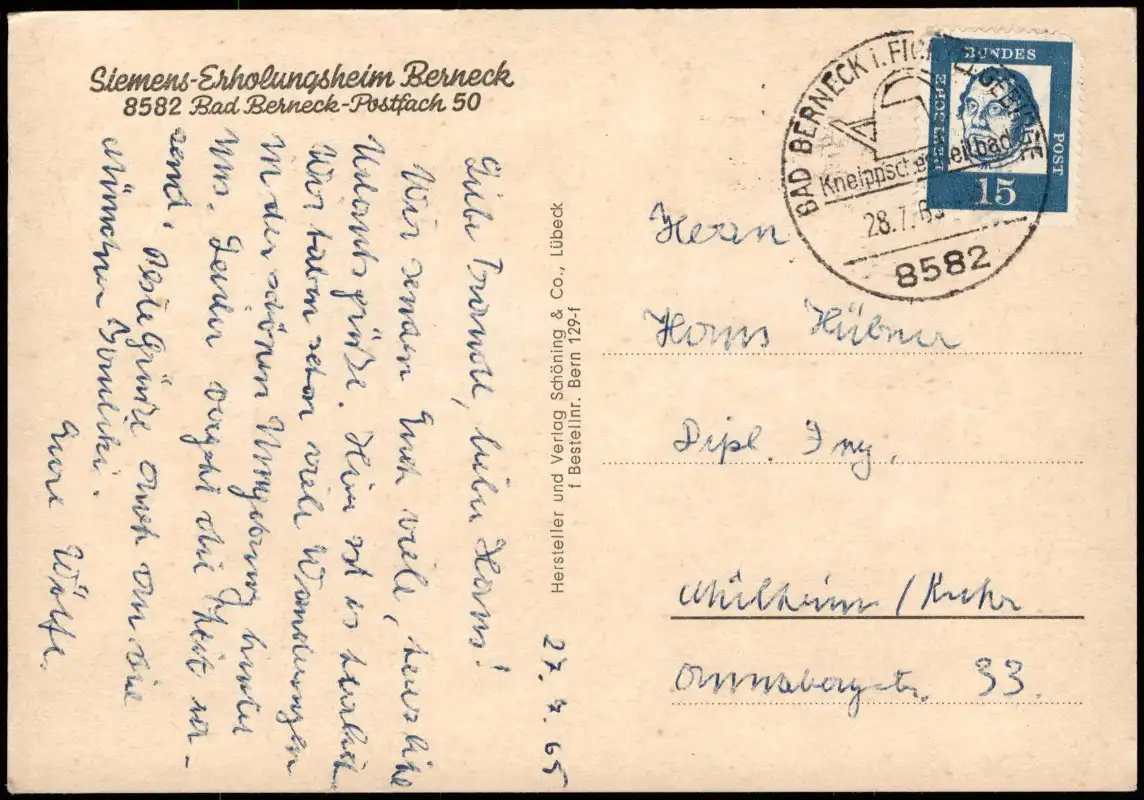 Siemens-Erholungsheim Berneck
8582 Bad Berneck-Postfach 50
27. 7. 65
Liebe Traudl, lieber Hans!
Wir senden Euch viele, herzliche
Urlaubsgrüße. Hier ist es herrlich.
Wir haben schon viele Wanderungen
in der schönen Umgebung hinter
uns. Leider vergeht die Zeit ra-
send. Beste Grüße auch an die
Münchner
Eure Wölfe.
Hersteller und Verlag Schöning & Co., Lübeck
f Bestellnr. Bern 129-f
BAD BERNECK i. FICHTELGEBIRGE
Kneippsches Heilbad
28.7.65
8582
DEUTSCHE BUNDES POST
15
Herrn
Hans Hübner
Dipl. Ing.
Mülheim/Ruhr
Annabergstr. 33.